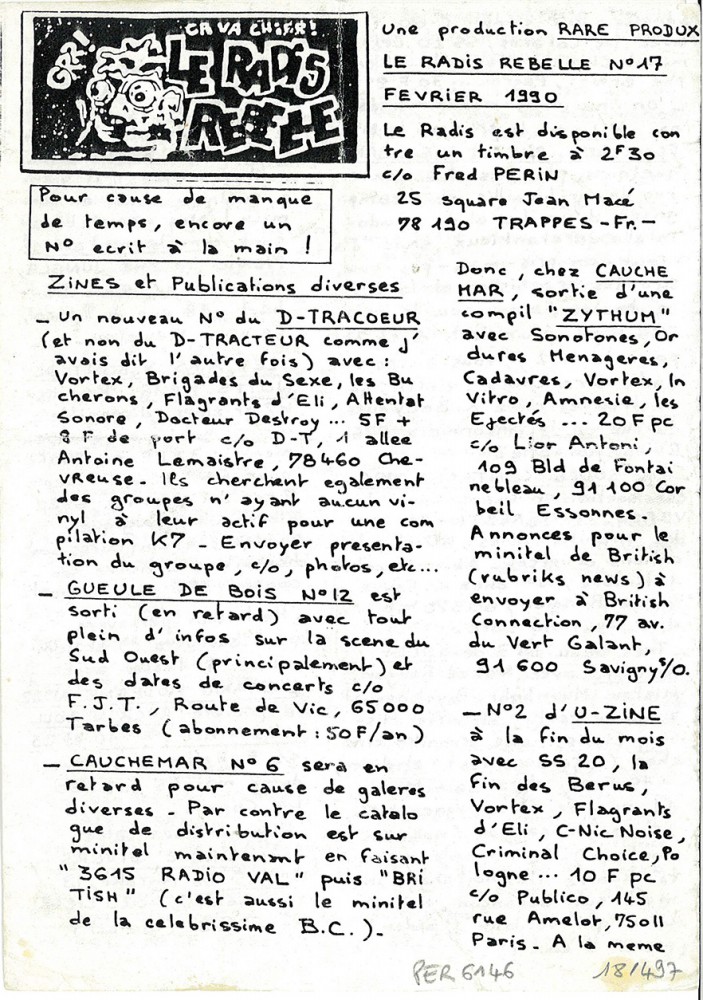 ÇA VA CHIER!
GRR!
LE RADIS
REBELLE
Une production RARE PRODUX
LE RADIS REBELLE N°17
FEVRIER 1990
Le Radis est disponible con
tre un timbre à 2F30
c/o Fred PERIN
25 square Jean Macé
78190 TRAPPES - Fr. -
Pour cause de manque
de temps, encore un
N° ecrit à la main !
ZINES et Publications diverses
- Un nouveau N° du D-TRACOEUR
(et non du D-TRACTEUR comme j'
avais dit l'autre fois) avec :
Vortex, Brigades du Sexe, les Bu
cherons, Flagrants d'Eli, Attentat
Sonore, Docteur Destroy ... 5F +
3F de port c/o D-T, 1 allee
Antoine Lemaistre, 78460 Che-
vreuse. Ils cherchent egalement
des groupes n'ayant aucun vi-
nyl à leur actif pour une com
pilation K7 - Envoyer presenta-
tion du groupe, c/o, photos, etc...
- GUEULE DE BOIS N°12 est
sorti (en retard) avec tout
plein d'infos sur la scene du
Sud Ouest (principalement) et
des dates de concerts c/o
F.J.T., Route de Vic, 65000
Tarbes (abonnement : 50F/an)
- CAUCHEMAR N°6 sera en
retard pour cause de galeres
diverses - Par contre le catalo
gue de distribution est sur
minitel maintenant en faisant
"3615 RADIO VAL" puis "BRI
TISH" (c'est aussi le minitel
de la celebrissime B.C.).
Donc, chez CAUCHE
MAR, sortie d'une
compil "ZYTHUM"
avec Sonotones, Or
dures Menageres,
Cadavres, Vortex, In
Vitro, Amnesie, les
Ejectés ... 20F pc
c/o Lior Antoni,
109 Bld de Fontai
nebleau, 91100 Cor
beil Essonnes.
Annonces pour le
minitel de British
(rubriks news) à
envoyer à British
Connection, 77 av.
du Vert Galant,
91600 Savigny s/O.
- N°2 d'U-ZINE
à la fin du mois
avec SS 20, la
fin des Berus,
Vortex, Flagrants
d'Eli, C-Nic Noise,
Criminal Choice, Po
logne ... 10 F pc
c/o Publico, 145
rue Amelot, 75011
Paris. A la meme
PER 6146
18/497